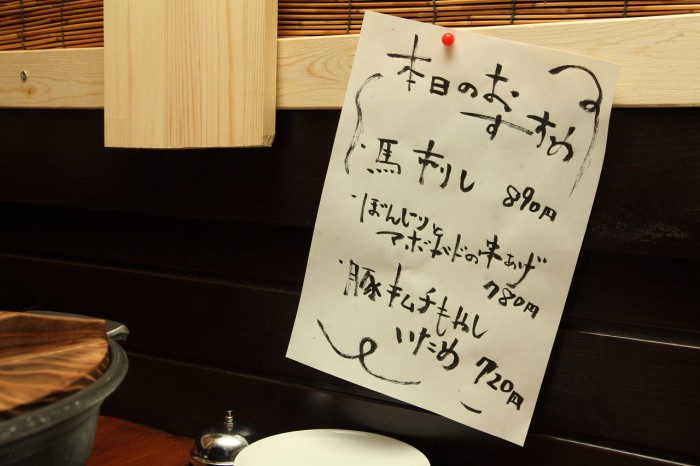 本日のおすすめ
馬刺し 890円
ぼんじりと
アボガドの串あげ
780円
豚キムチもやし
いため 720円